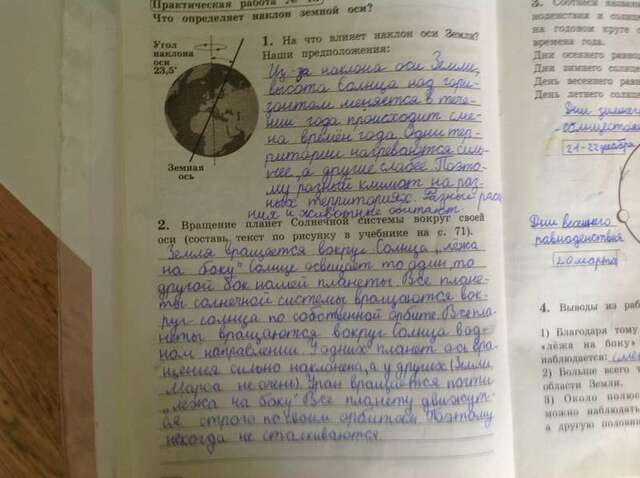 Практическая работа №
Что определяет наклон земной оси?
Угол
наклона
оси
23,5°
Земная
ось
1. На что влияет наклон оси Земли?
Наши предположения:
Из за наклона оси Земли,
высота Солнца над гори-
зонтом меняется в тече-
нии года происходит сме-
на времён года. Одни тер-
ритории нагреваются силь-
нее, а другие слабее. Поэто-
му разный климат на раз-
ных территориях. Разные рас
ния и животные обитают.
2. Вращение планет Солнечной системы вокруг своей
оси (составь текст по рисунку в учебнике на с. 71).
Земля вращается вокруг Солнца „лежа
на боку" Солнце освещает то один, то
другой бок нашей планеты. Все плане-
ты солнечной системы вращаются вок-
руг солнца по собственной орбите. Все пла-
неты вращаются вокруг Солнца в од-
ном направлении. У одних планет ось вра-
щения сильно наклонена, а у других (Земли,
Марса не очень). Уран вращается почти
„лежа на боку" Все планету движут-
ся строго по своим орбитам. Поэтому
некогда не сталкиваются.
3. Соотнеси названи
ноденствия и солнц
на годовом круге с
времена года.
Дни осеннего равно
Дни зимнего солнц
День весеннего равн
День летнего солнц
Дни зимнего
21-22 декабря
Дни весеннего
равноденствия
20 марта
4. Выводы из раб
1) Благодаря тому
«лёжа на боку»
наблюдается:
2) Больше всего
области Земли.
3) Около полюс
можно наблюдать
а другую половин